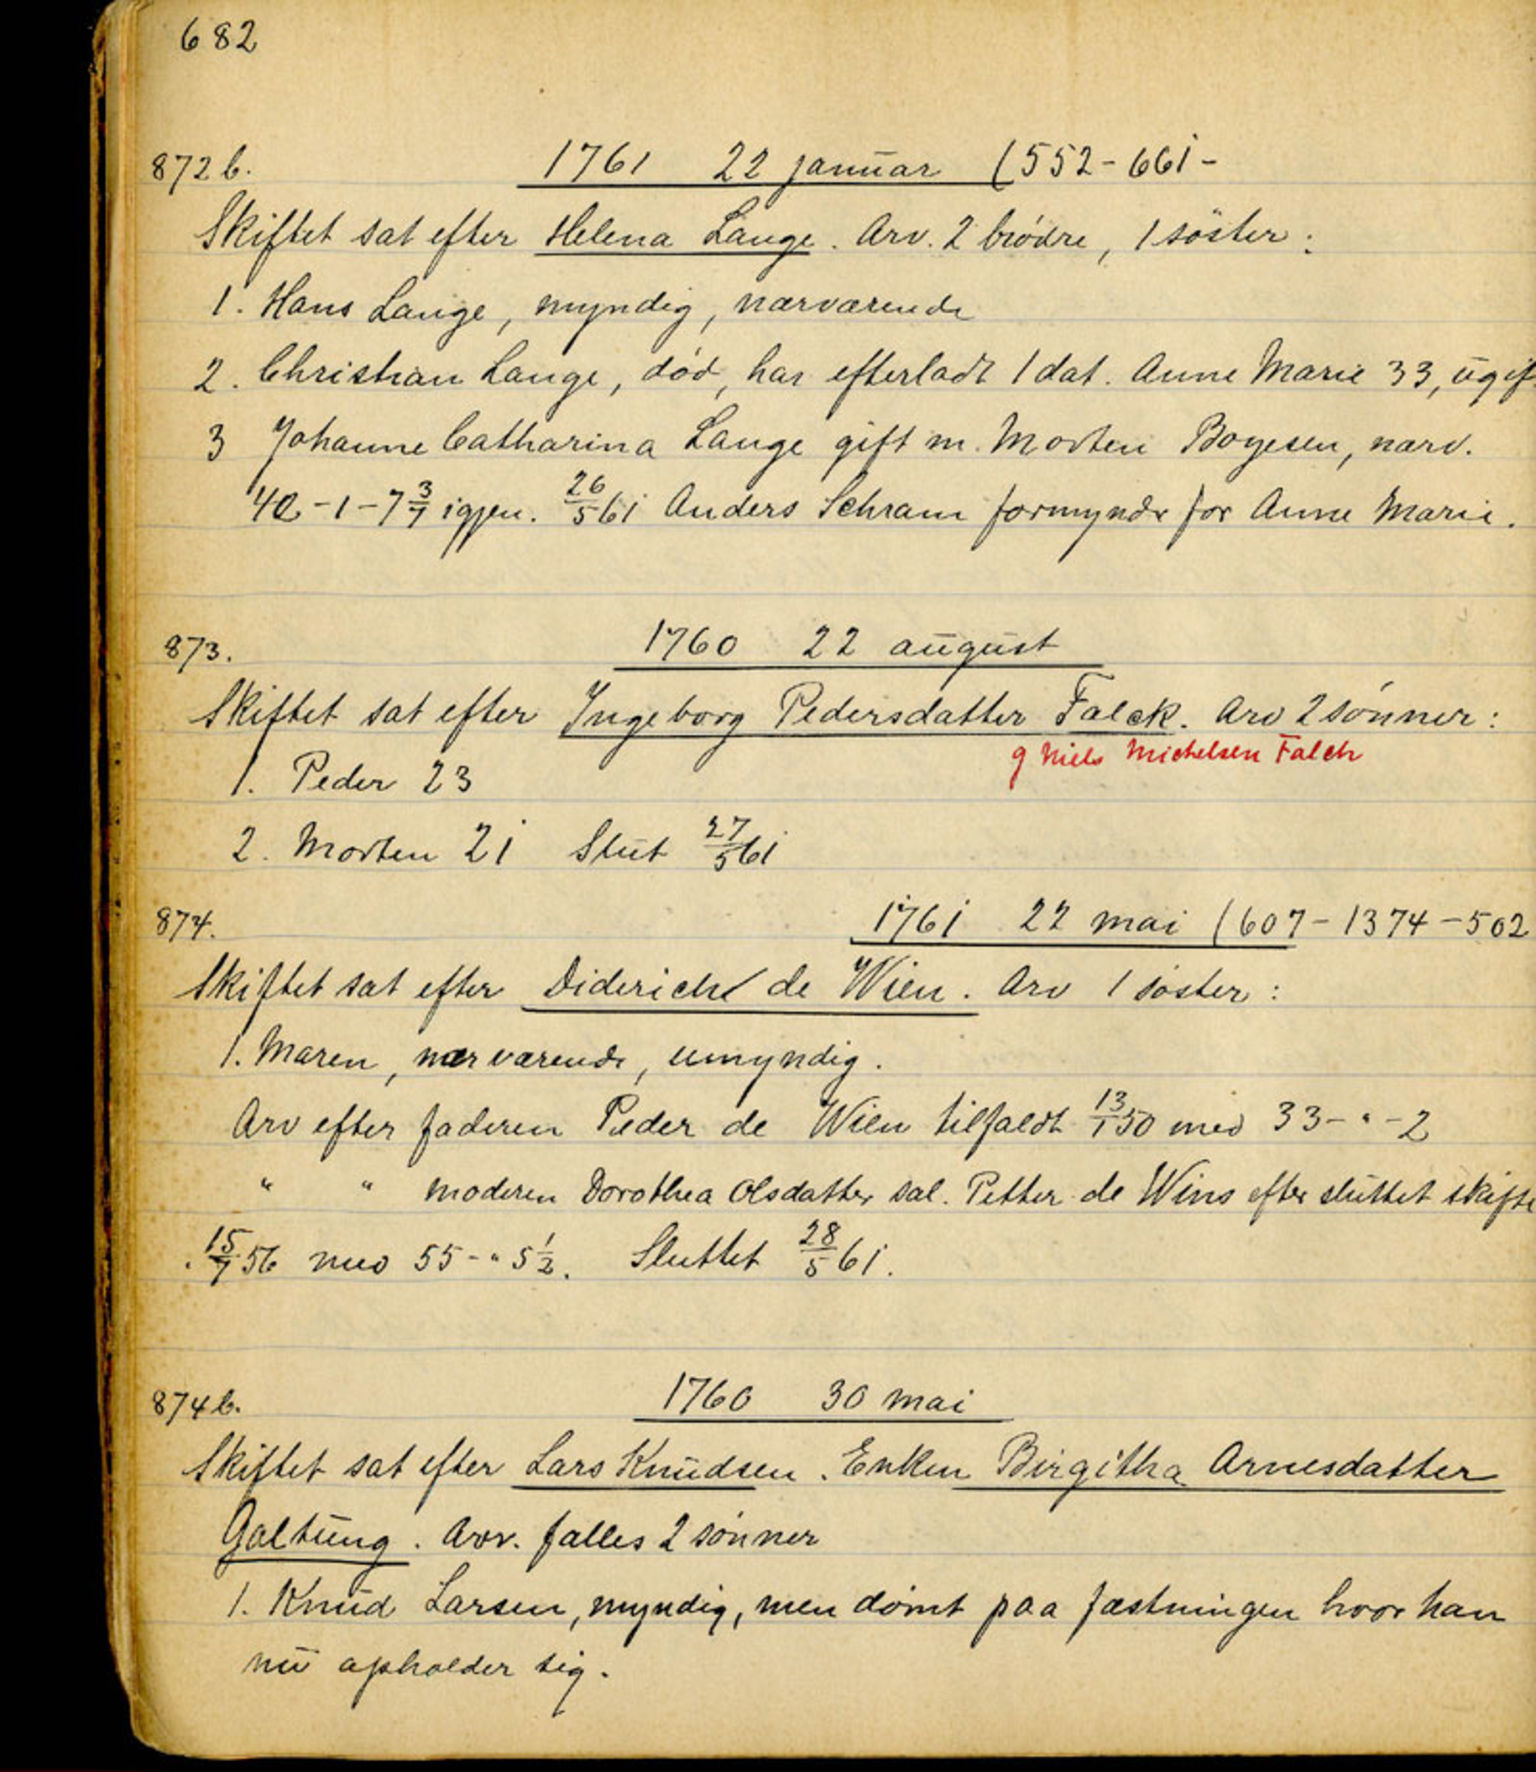 682
872 b. 1761 22 januar (552-661-
Skiftet sat efter Helena Lange. Arv. 2 brødre, 1 søster:
1. Hans Lange, myndig, nærværende
2. Christian Lange, død, har efterladt 1 dat. Anne Marie 33, ugif
3 Johanne Catharina Lange gift m. Morten Boyesen, nærv.
40-1-7 3/7 igjen. 26/5 61 Anders Schram formyndr for Anne Marie.
873. 1760 22 august
Skiftet sat efter Ingeborg Pedersdatter Falck. Arv 2 sønner:
g Niels Michelsen Falch
1. Peder 23
2. Morten 21 Slut 27/5 61
874. 1761 22 mai (607-1374-502
Skiftet sat efter Diderich de Wien. Arv 1 søster:
1. Maren, nærværende, umyndig.
Arv efter faderen Peder de Wien tilfaldt 13/1 50 med 33-"-2
" " moderen Dorothea Olsdatter sal. Petter de Wins efter sluttet skifte
15/7 56 med 55-"5 1/2. Sluttet 28/5 61.
874 b. 1760 30 mai
Skiftet sat efter Lars Knudsen. Enken Birgitha Arnesdatter
Galtung. Arv. fælles 2 sønner
1. Knud Larsen, myndig, men dømt paa fæstningen hvor han
nu opholder sig.